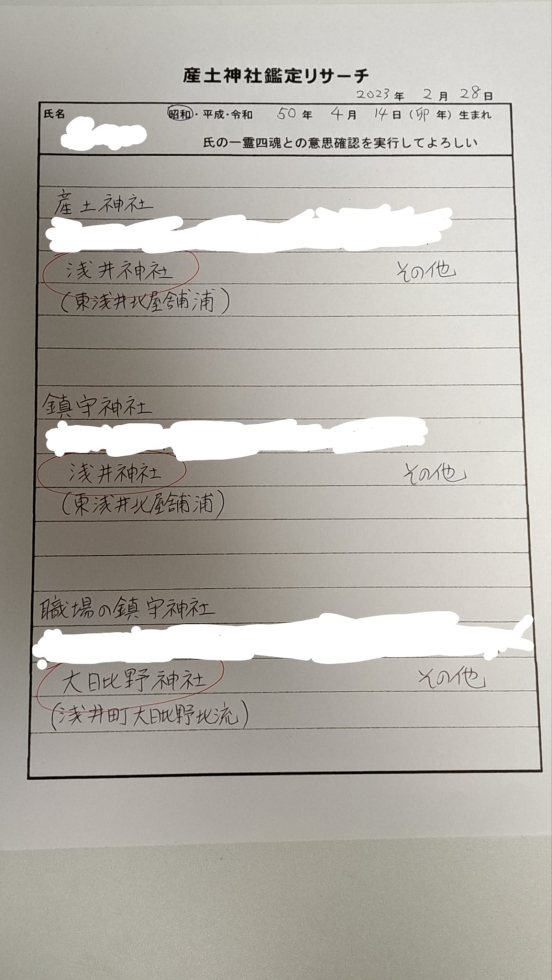 産土神社鑑定リサーチ
2023年 2月 28日
氏名 昭和・平成・令和 50年 4月 14日(卯年)生まれ
氏の一霊四魂との意思確認を実行してよろしい
産土神社
浅井神社 その他
(東浅井北屋舗浦)
鎮守神社
浅井神社 その他
(東浅井北屋舗浦)
職場の鎮守神社
大日比野神社 その他
(浅井町大日比野北流)